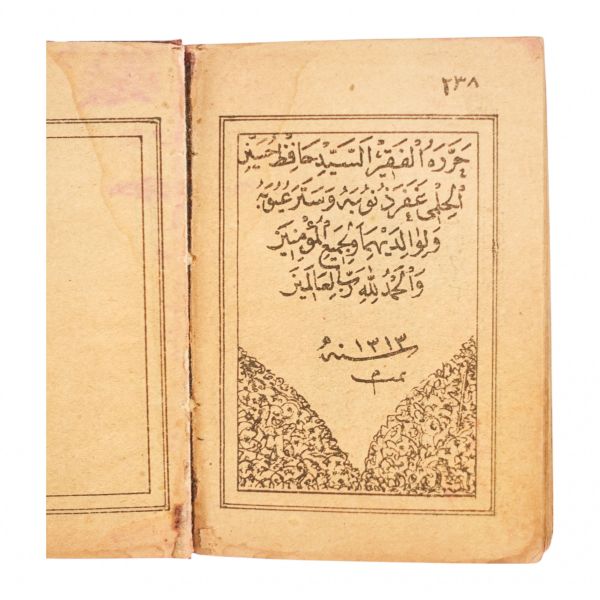 ٢٣٨
حَرَّرَهُ الْفَقِيرُ السَّيِّد حَافِظ حُسَيْن
الْحِلْمِى غَفَرَ ذُنُوبَهُ وَسَتَرَ عُيُوبَهُ
وَلِوَالِدَيْهِمَا وَلِجَمِيعِ الْمُؤْمِنِينَ
وَالْحَمْدُ لِلّٰهِ رَبِّ الْعَالَمِينَ
سنه ١٣١٣